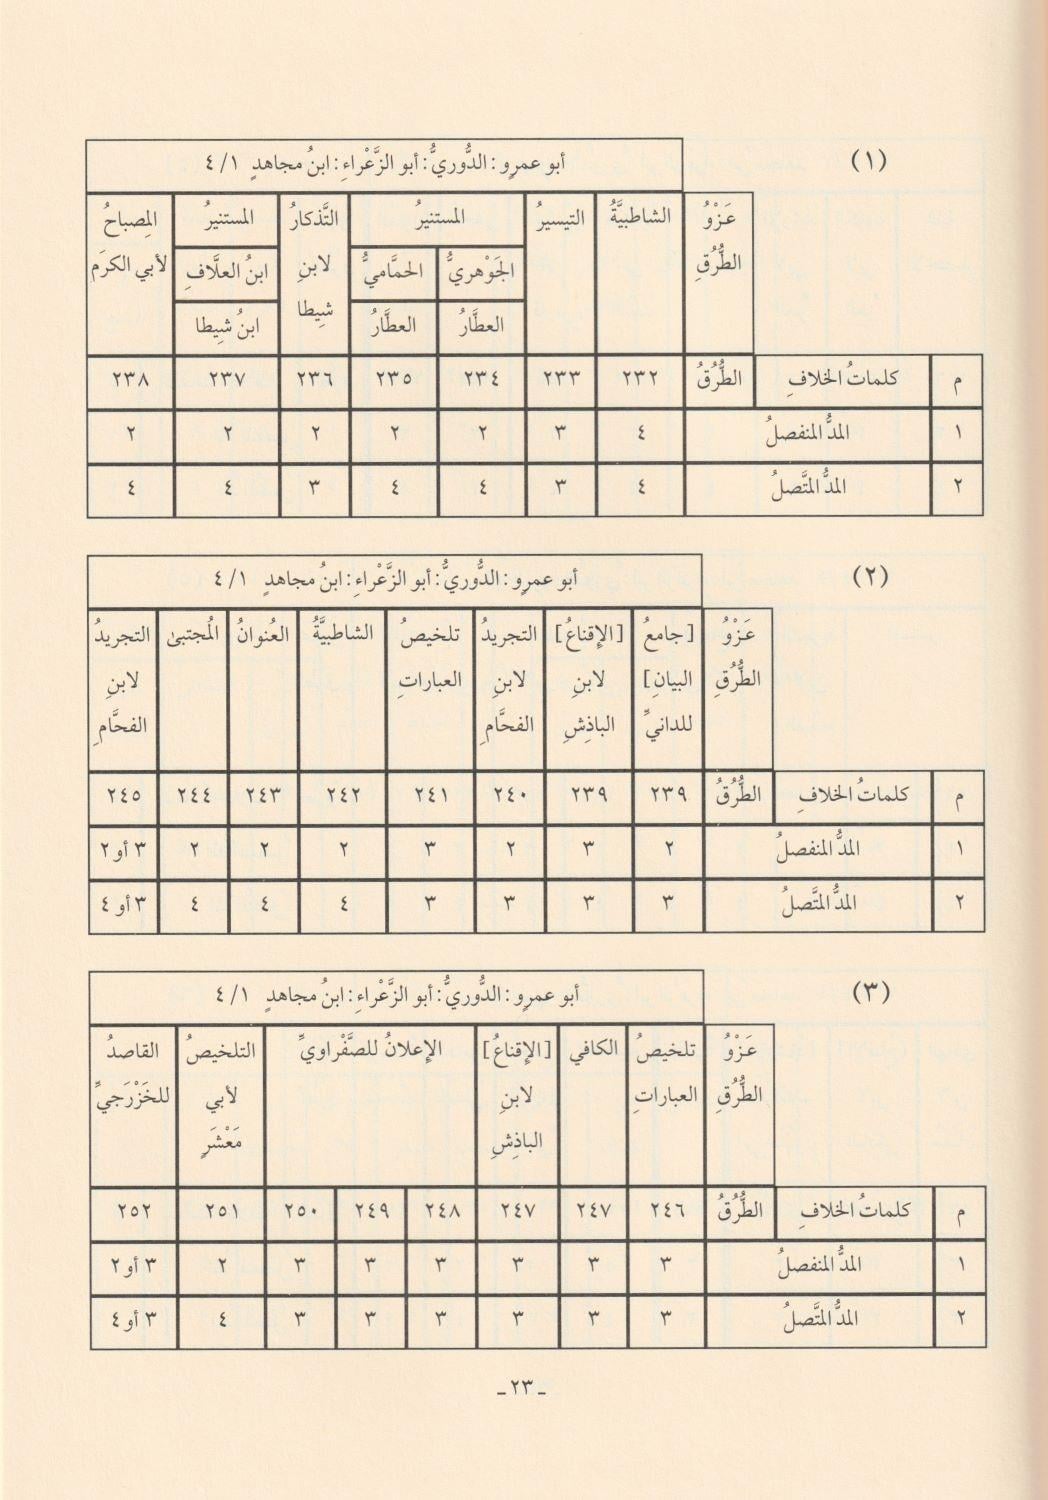 (١)
أبو عمرٍو : الدُّوريُّ : أبو الزَّعْراءِ : ابنُ مجاهدٍ ١/ ٤
عَزْوُ الطُّرُقِ | الشاطبيَّةُ | التيسيرُ | المستنيرُ | التَّذكارُ لابنِ شِيطا | المستنيرُ | المِصباحُ لأبي الكرَمِ
الجَوْهريُّ | الحمَّاميُّ | ابنُ العلَّافِ
العطَّارُ | العطَّارُ | ابنُ شِيطا
م | كلماتُ الخلافِ | الطُّرُقُ | ٢٣٢ | ٢٣٣ | ٢٣٤ | ٢٣٥ | ٢٣٦ | ٢٣٧ | ٢٣٨
١ | المدُّ المنفصلُ | ٤ | ٣ | ٢ | ٢ | ٢ | ٢ | ٢
٢ | المدُّ المتَّصلُ | ٤ | ٣ | ٤ | ٤ | ٣ | ٤ | ٤
(٢)
أبو عمرٍو : الدُّوريُّ : أبو الزَّعْراءِ : ابنُ مجاهدٍ ١/ ٤
عَزْوُ الطُّرُقِ | [جامعُ البيانِ] للدانيِّ | [الإقناعُ] لابنِ الباذِشِ | التجريدُ لابنِ الفحَّامِ | تلخيصُ العباراتِ | الشاطبيَّةُ | العُنوانُ | المُجتبىٰ | التجريدُ لابنِ الفحَّامِ
م | كلماتُ الخلافِ | الطُّرُقُ | ٢٣٩ | ٢٣٩ | ٢٤٠ | ٢٤١ | ٢٤٢ | ٢٤٣ | ٢٤٤ | ٢٤٥
١ | المدُّ المنفصلُ | ٢ | ٣ | ٢ | ٣ | ٢ | ٢ | ٢ | ٣ أو ٢
٢ | المدُّ المتَّصلُ | ٣ | ٣ | ٣ | ٣ | ٤ | ٤ | ٤ | ٣ أو ٤
(٣)
أبو عمرٍو : الدُّوريُّ : أبو الزَّعْراءِ : ابنُ مجاهدٍ ١/ ٤
عَزْوُ الطُّرُقِ | تلخيصُ العباراتِ | الكافي | [الإقناعُ] لابنِ الباذِشِ | الإعلانُ للصَّفْراويِّ | التلخيصُ لأبي مَعْشَرٍ | القاصدُ للخَزْرَجيِّ
م | كلماتُ الخلافِ | الطُّرُقُ | ٢٤٦ | ٢٤٧ | ٢٤٧ | ٢٤٨ | ٢٤٩ | ٢٥٠ | ٢٥١ | ٢٥٢
١ | المدُّ المنفصلُ | ٣ | ٣ | ٣ | ٣ | ٣ | ٣ | ٢ | ٣ أو ٢
٢ | المدُّ المتَّصلُ | ٣ | ٣ | ٣ | ٣ | ٣ | ٣ | ٤ | ٣ أو ٤
ـ ٢٣ ـ